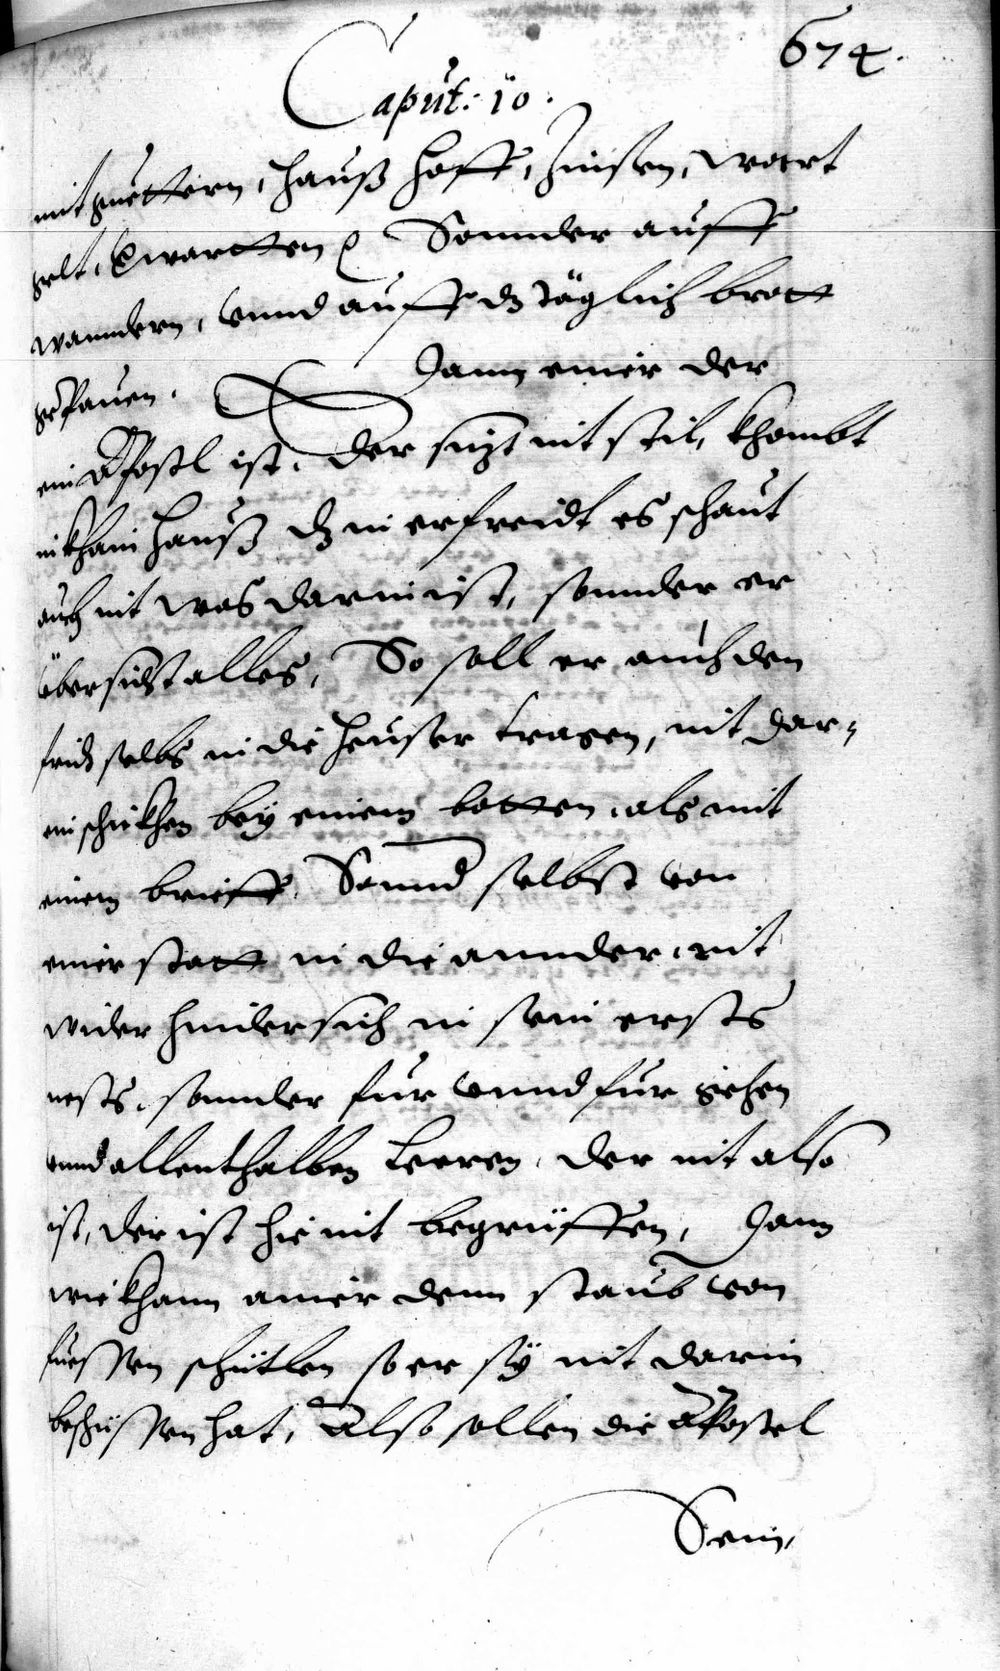 674.
Caput: 10.
mit guettern, hauß hoff, Zinsen, wart
gelt, Ewartten Sonnder auff
wanndern, vnnd auff dz täglich brott
gepauen. Dann einer der
ein Apostl ist, der sizt nit stil, khombt
in khain hauß dz in erfreidt es schaut
auch nit was darin ist, sonnder er
übersicht alles, So soll er auch den
frid selbs in die heuser tragen, nit dar-
ein schickhen bey einem botten, als mit
einem brieff Sonnd selbst von
einer statt in die annder, nit
wider hindersich in sein ersts
nests, sonnder fur vnnd fur gehen
vnnd allenthalben Leeren, der nit also
ist, der ist hie nit begriffen, Dann
wie khann ainer denn staub von
fuessen schütlen so er sy nit darin
beschissen hat, Also sollen die Apostel
Sein,